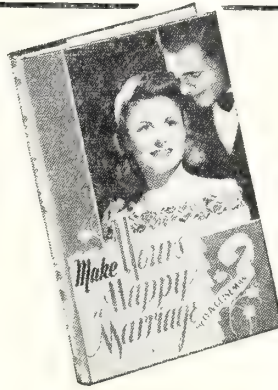 Make Yours
a Happy
Marriage